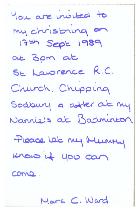 You are invited to
my christening on
17th Sept 1989
at 3pm at
St Lawrence R.C.
Church, Chipping
Sodbury & after at my
Nannie's at Badminton.
Please let my Mummy
know if you can
come.
Marc C. Ward